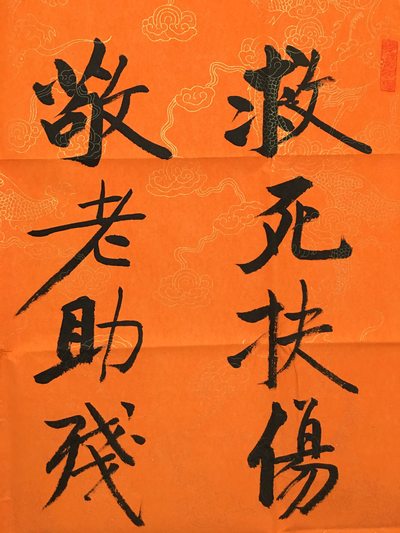 救死扶傷
敬老助殘